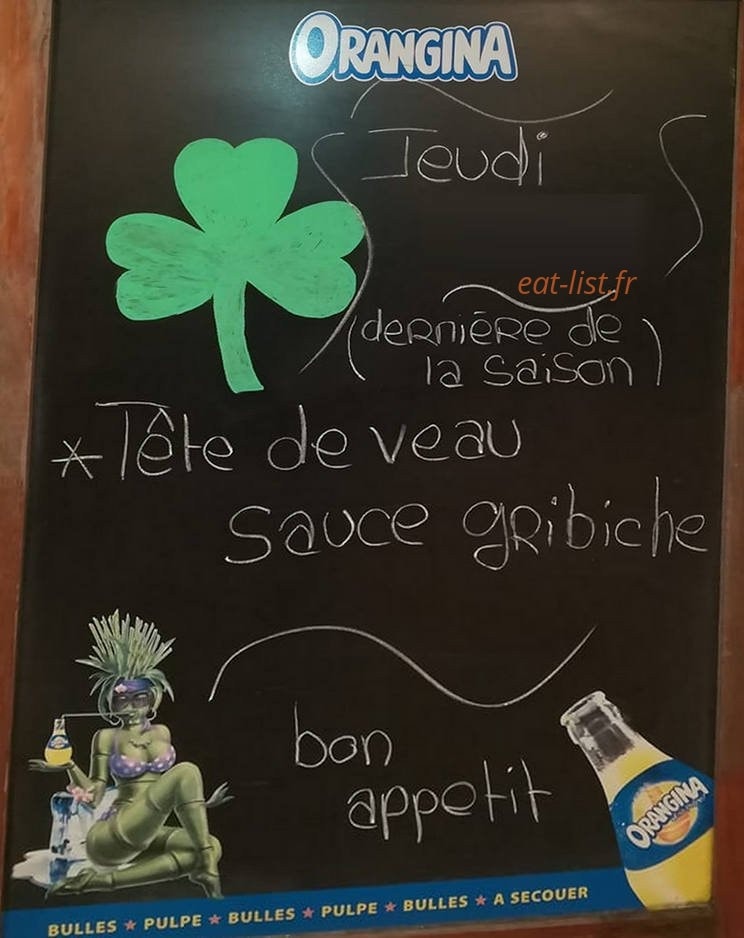 ORANGINA
Jeudi
eat-list.fr
(dernière de
la saison)
*Tête de veau
sauce gribiche
bon
appetit
ORANGINA
BULLES ★ PULPE ★ BULLES ★ PULPE ★ BULLES ★ A SECOUER